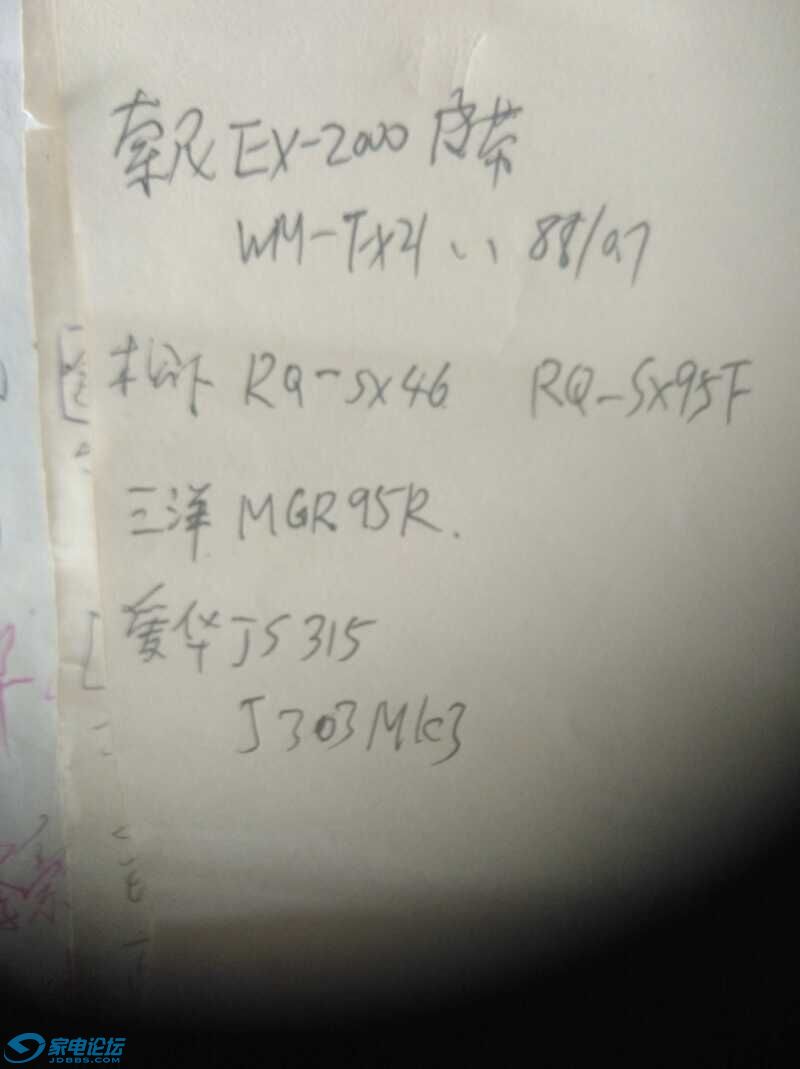 索尼 EX-2000 皮带
WM-TX21 、、 88/0.7
松下 RQ-SX46 RQ-SX95F
三洋 MGR95R.
爱华 JS315
J303MK3
家电论坛
JDBBS.COM